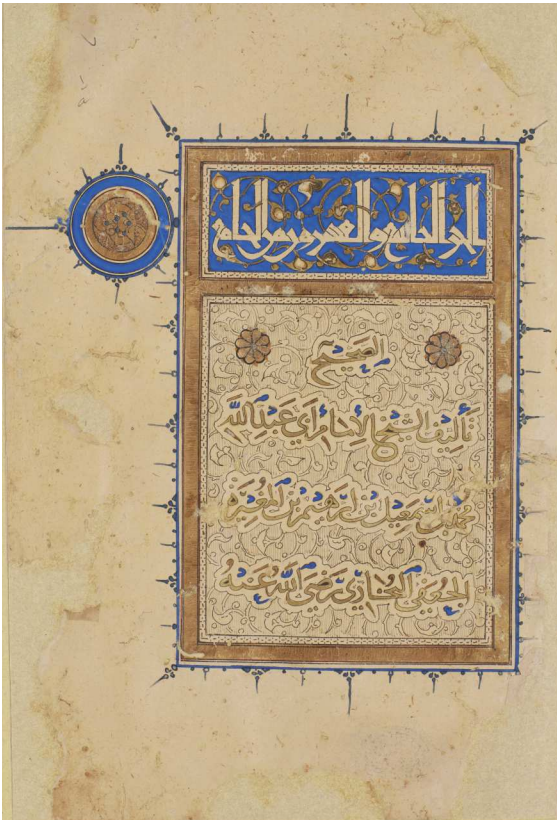 الجزء والعشرون من الجامع
الصحيح
تأليف الشيخ الإمام أبي عبد الله
محمد بن إسمعيل بن إبرهيم بن المغيرة
الجعفي البخاري رضي الله عنه